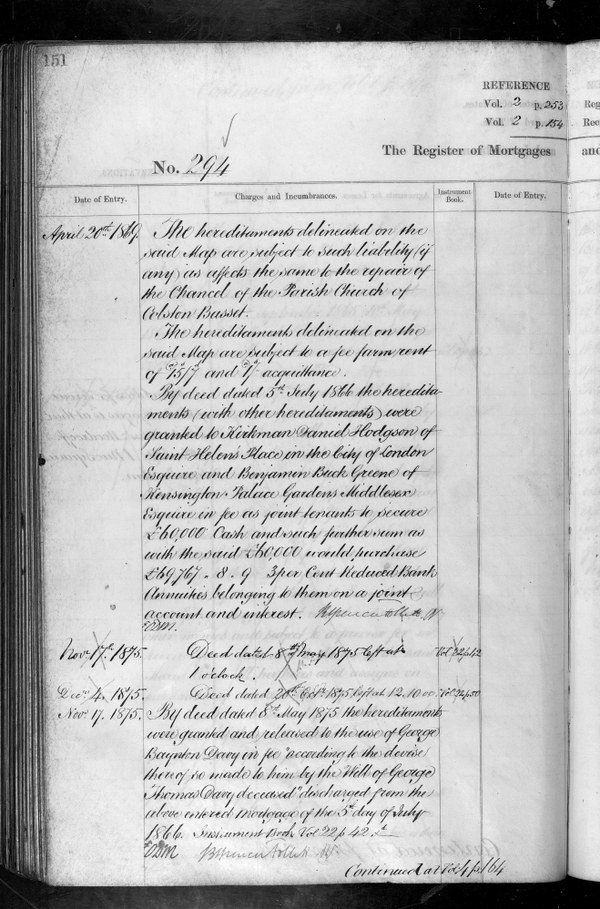 151
REFERENCE
Vol. 2 p. 253
Vol. 2 p. 154
The Register of Mortgages and
No. 294
Date of Entry. Charges and Incumbrances. Instrument Book. Date of Entry.
April 20th 1869. The hereditaments delineated on the
said Map are subject to such liability (if
any) as affects the same to the repair of
the Chancel of the Parish Church of
Colston Basset.
The hereditaments delineated on the
said Map are subject to a fee farm rent
of 75/7 and acquittance.
By deed dated 5th July 1866 the heredita-
ments (with other hereditaments) were
granted to Kirkman Daniel Hodgson of
Saint Helens Place in the City of London
Esquire and Benjamin Buck Greene of
Kensington Palace Gardens Middlesex
Esquire in fee as joint tenants to secure
£60,000 Cash and such further sum as
with the said £60,000 would purchase
£69,767 . 8 . 9 3 per Cent Reduced Bank
Annuities belonging to them on a joint
account and interest.
Novr 17th 1875. Deed dated 8th May 1875 left at 1 Vol 22 p. 42
1 o'clock.
Decr 4. 1875. Deed dated 20th Octr 1875 left at 12.10 Vol 22 p. 50
Novr 17. 1875. By deed dated 8th May 1875 the hereditaments
were granted and released to the use of George
Baynton Davy in fee "according to the devise
thereof so made to him by the Will of George
Thomas Davy deceased" discharged from the
above entered mortgage of the 5th day of July
1866. Instrument Book Vol 22 p 42
Continued at Vol 4 p. 164